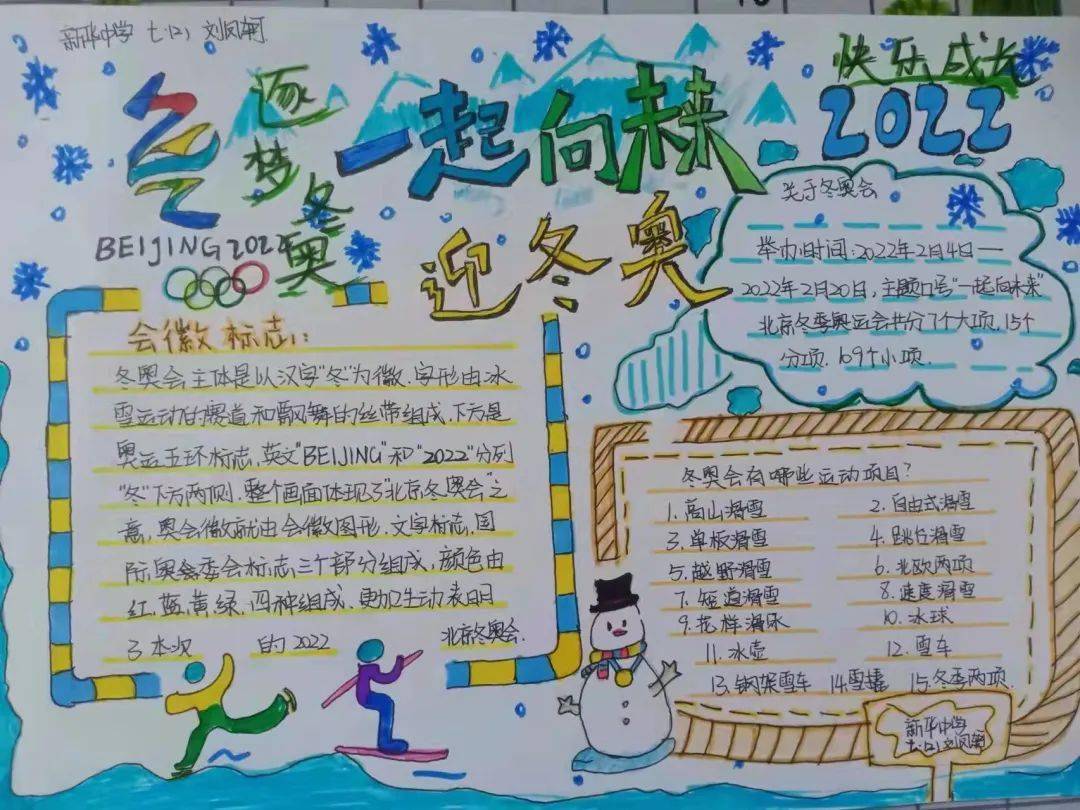 新华中学 七.(2) 刘凤菊
快乐成长
2022
逐梦冬奥
一起向未来
迎冬奥
BEIJING 2022
会徽标志:
冬奥会主体是以汉字"冬"为徽.字形由冰
雪运动的赛道和飘舞的丝带组成.下方是
奥运五环标志,英文"BEIJING"和"2022"分列
"冬"下方两侧.整个画面体现了"北京冬奥会"之
意,奥会徽就由会徽图形.文字标志,国
际奥委会标志三个部分组成,颜色由
红.蓝.黄.绿.四种组成.更加生动表明
了本次 的2022 北京冬奥会.
关于冬奥会
举办时间:2022年2月4日——
2022年2月20日,主题口号"一起向未来"
北京冬季奥运会共分7个大项,15个
分项.109个小项.
冬奥会有哪些运动项目?
1.高山滑雪 2.自由式滑雪
3.单板滑雪 4.跳台滑雪
5.越野滑雪 6.北欧两项
7.短道滑雪 8.速度滑雪
9.花样滑冰 10.冰球
11.冰壶 12.雪车
13.钢架雪车 14.雪橇 15.冬季两项.
新华中学
七.(2)刘凤菊